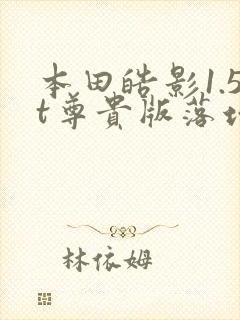 本田皓影1.5
t尊贵版落
林依姆